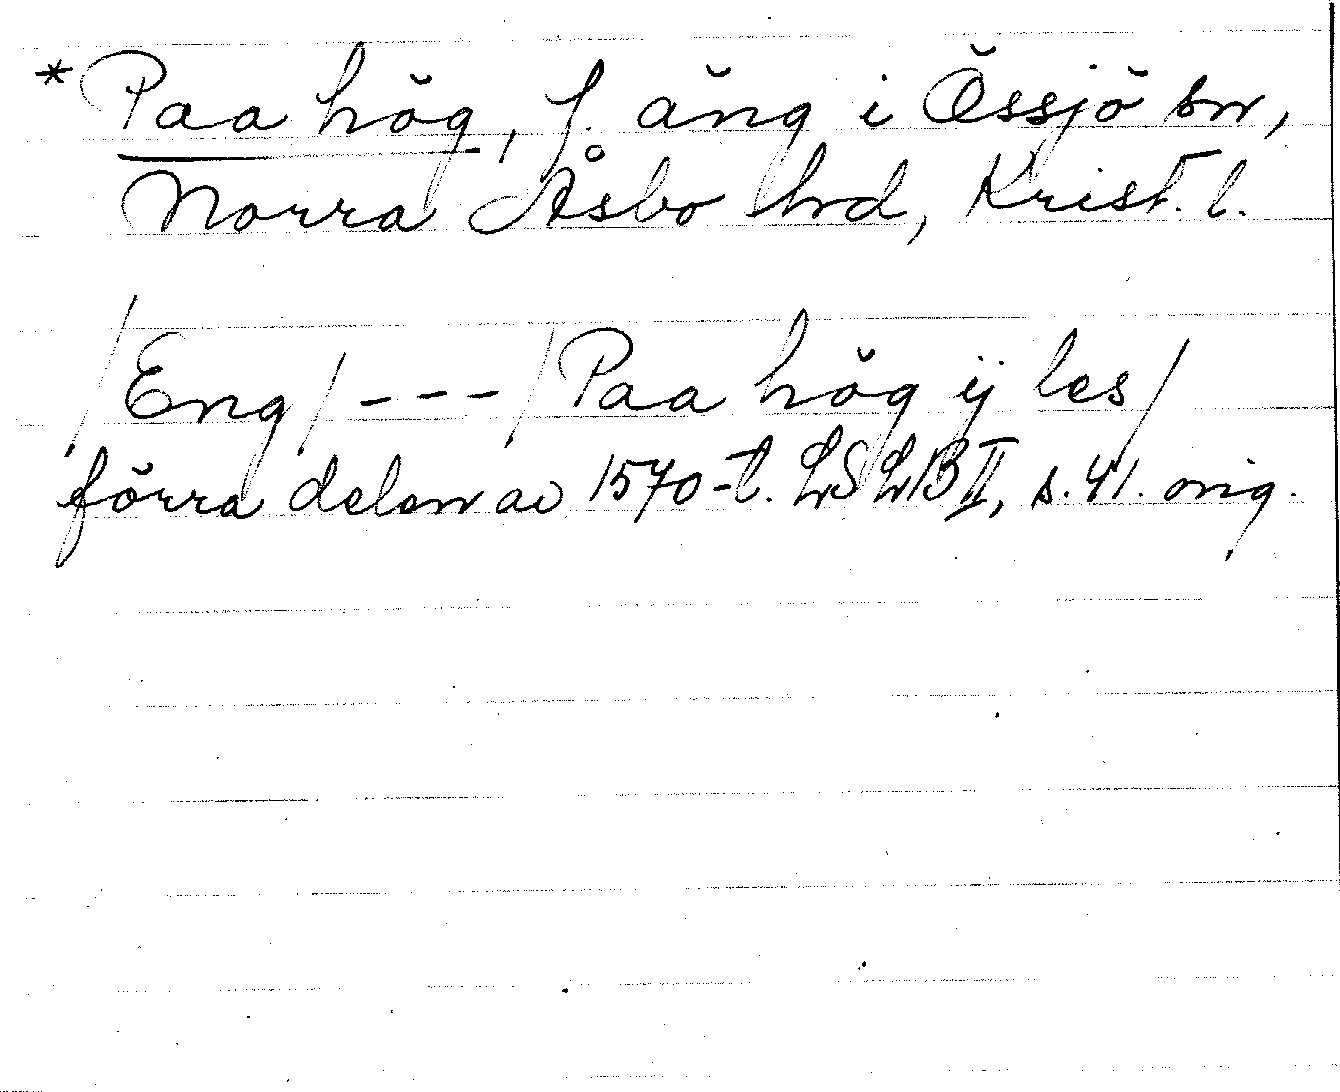 * Paa hög, f. äng i Össjö sn,
Norra Åsbo hrd, Krist. l.
/Eng/ --- /Paa hög ij les/
förra delen av 1570-t. LSLB II, s. 41. orig.